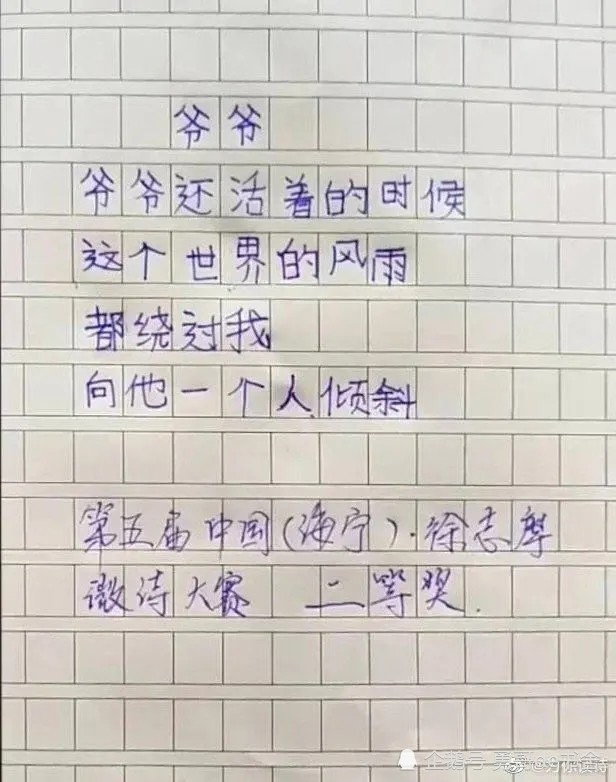 爷爷
爷爷还活着的时候
这个世界的风雨
都绕过我
向他一个人倾斜
第五届中国(海宁)·徐志摩
微诗大赛 二等奖.
企鹅号